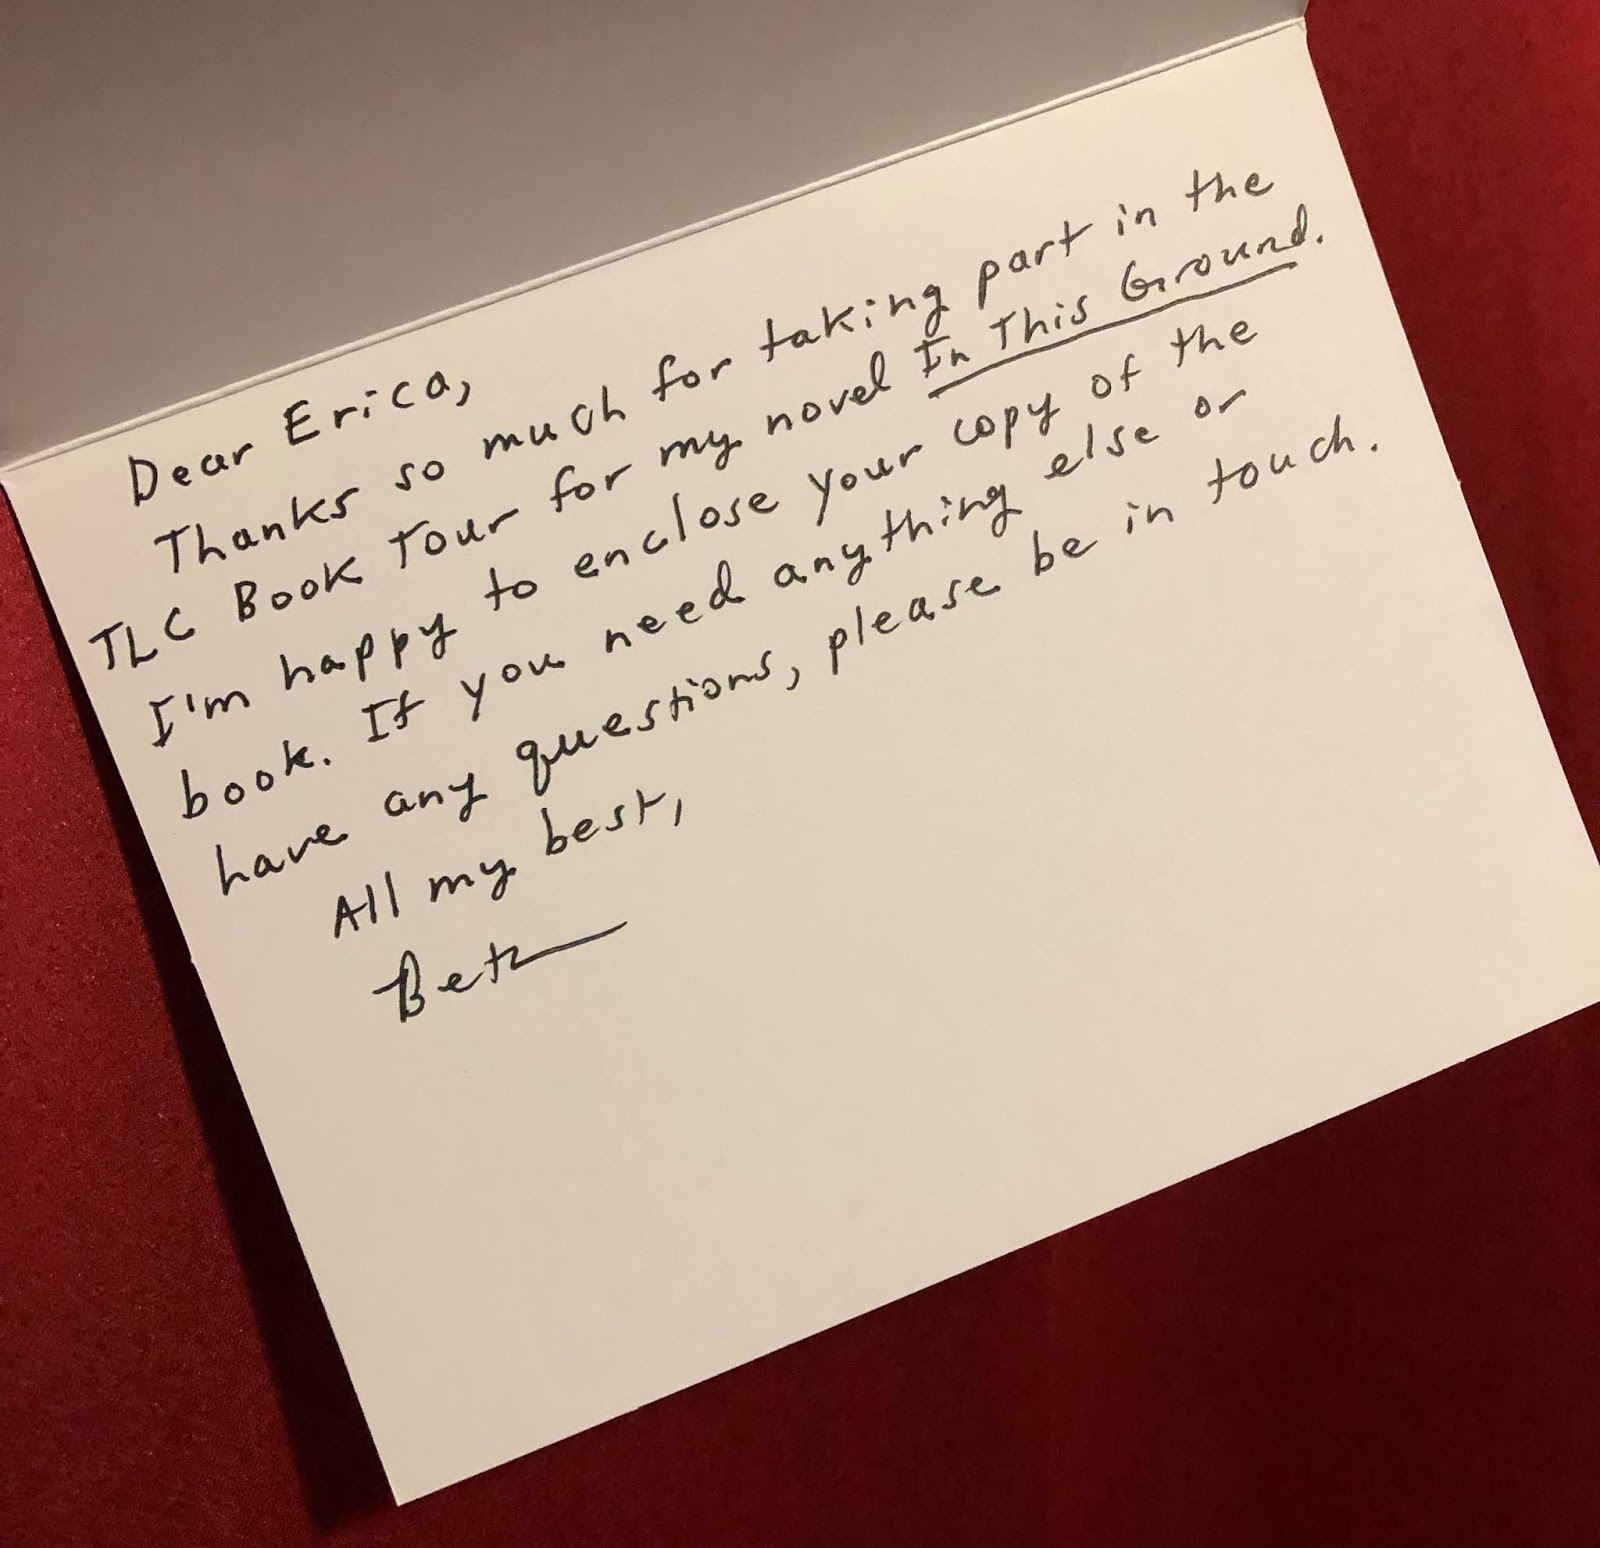 Dear Erica,
Thanks so much for taking part in the
TLC Book Tour for my novel In This Ground.
I'm happy to enclose your copy of the
book. If you need anything else or
have any questions, please be in touch.
All my best,
Beth